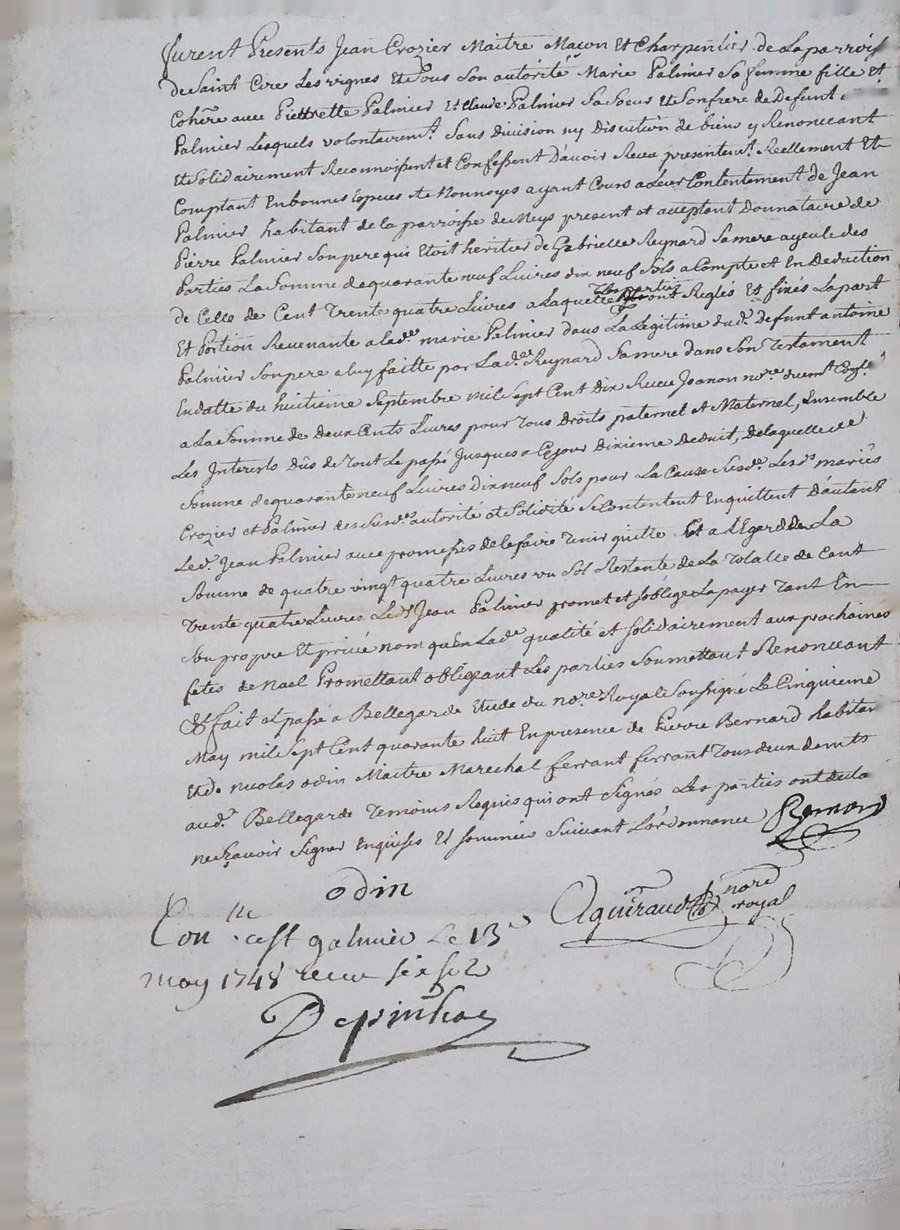 furent Presents Jean Crozier Maitre Macon Et Charpentier de La parroisse
de Saint Cire Les vignes Et Sous Son autorité Marie Palmier Sa femme fille Et
Cohere avec Pierrette Palmier Et Claude Palmier Sa Soeur Et Son frere de Defunt
Palmier Lesquels volontairemt. Sans division ny discution de biens y Renonceant
Et Solidairement Reconnoissent et Confessent D'avoir Receu presentemt. Reellement Et
Comptant En bonnes Especes et Monnoyes ayant Cours a Leur Contentement de Jean
Palmier habitant de la parroisse de Meys present et acceptant Donnataire de
Pierre Palmier Son pere qui Etoit heritier de Gabrielle Reynard Sa mere ayeule des
Parties La Somme de quarante neuf Livres dix neuf Sols a Compte et En Deduction
de Celle de Cent Trente quatre Livres a Laquelle les parties ont Reglés Et fixés La part
Et Portion Revenante a lade. marie Palmier dans La Legitime dud. defunt antoine
Palmier Son pere a luy faitte par Lade. Reynard Sa mere dans Son Testament
En datte du huitieme Septembre mil Sept Cent dix Receu Joanon nore.
a La Somme de deux Cents Livres pour Tous Droits paternel et Maternel, Ensemble
Les Interests dûs de Tout Le passé Jusques a Ce jour dixieme Deduit, de laquelle
Somme de quarante neuf Livres dix neuf Sols pour La Cause Susde. Lesds. mariés
Crozier et Palmier des Susdes. autorité et Solidité Se Contentent En quittent D'autant
Led. Jean Palmier avec promesses de le faire Tenir quitte Et a L'Egard de La
Somme de quatre vingt quatre Livres un Sol Restente de La Totalle de Cent
Trente quatre Livres Led. Jean Palmier promet et S'oblige La payer Tant En
Son propre Et privé nom qu'En Lade. qualité et Solidairement aux prochaines
fetes de Noel Promettant obligeant Les parties Soumettant Renonceant
Et fait et passé a Bellegarde Etude du nore. Royal Soussigné Le Cinquieme
May mil Sept Cent quarante huit En presence de Pierre Bernard habitan
Et de nicolas odin Maitre Marechal ferrant ferrant Tous deux demts
aud. Bellegarde Temoins Requis qui ont Signés Les parties ont declaré
ne Sçavoir Signer Enquises Et Sommées Suivant L'ordonnance Bernard
odin
Aguiraud nore royal
Conlle a cest galmier Le 13e
may 1748 receu six sols
Depinhac